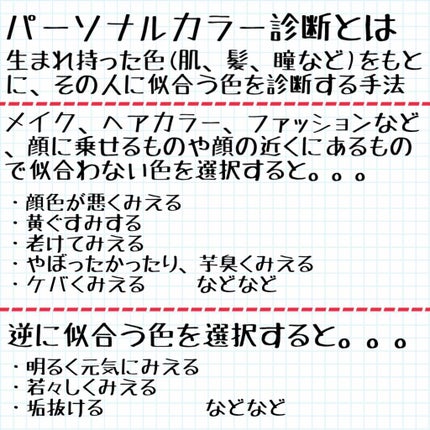 パーソナルカラー診断とは
生まれ持った色(肌、髪、瞳など)をもと
に、その人に似合う色を診断する手法
メイク、ヘアカラー、ファッションなど
、顔に乗せるものや顔の近くにあるもの
で似合わない色を選択すると。。。
・顔色が悪くみえる
・黄ぐすみする
・老けてみえる
・やぼったかったり、芋臭くみえる
・ケバくみえる　　などなど
逆に似合う色を選択すると。。。
・明るく元気にみえる
・若々しくみえる
・垢抜ける　　　　　などなど